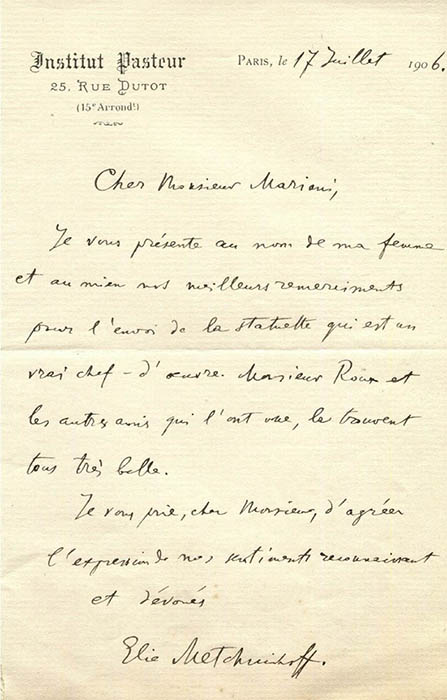 Institut Pasteur
25, RUE DUTOT
(15e Arrondt)
PARIS, le 17 Juillet 1906.
Cher Monsieur Mariani,
Je vous présente au nom de ma femme
et au mien nos meilleurs remerciments
pour l'envoi de la statuette qui est un
vrai chef-d'œuvre. Monsieur Roux et
les autres amis qui l'ont vue, la trouvent
tous très belle.
Je vous prie, cher Monsieur, d'agréer
l'expression de nos sentiments reconnaissant
et dévoués
Elie Metchnikoff.